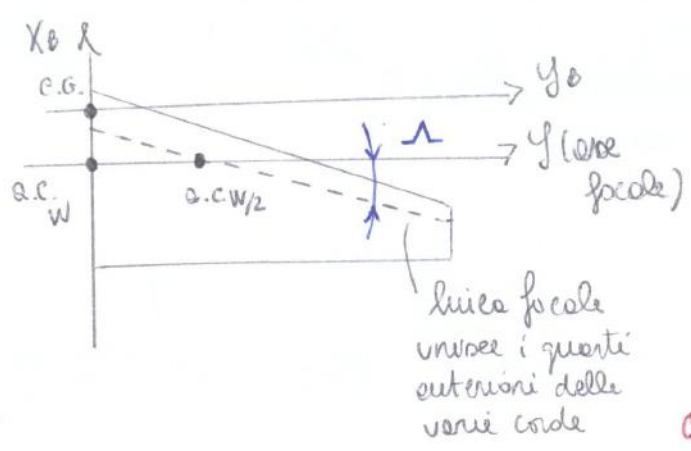 XB
C.G.
yB
Λ
y (asse
focale)
a.c.W
a.c.W/2
linea focale
unisce i quarti
anteriori delle
varie corde